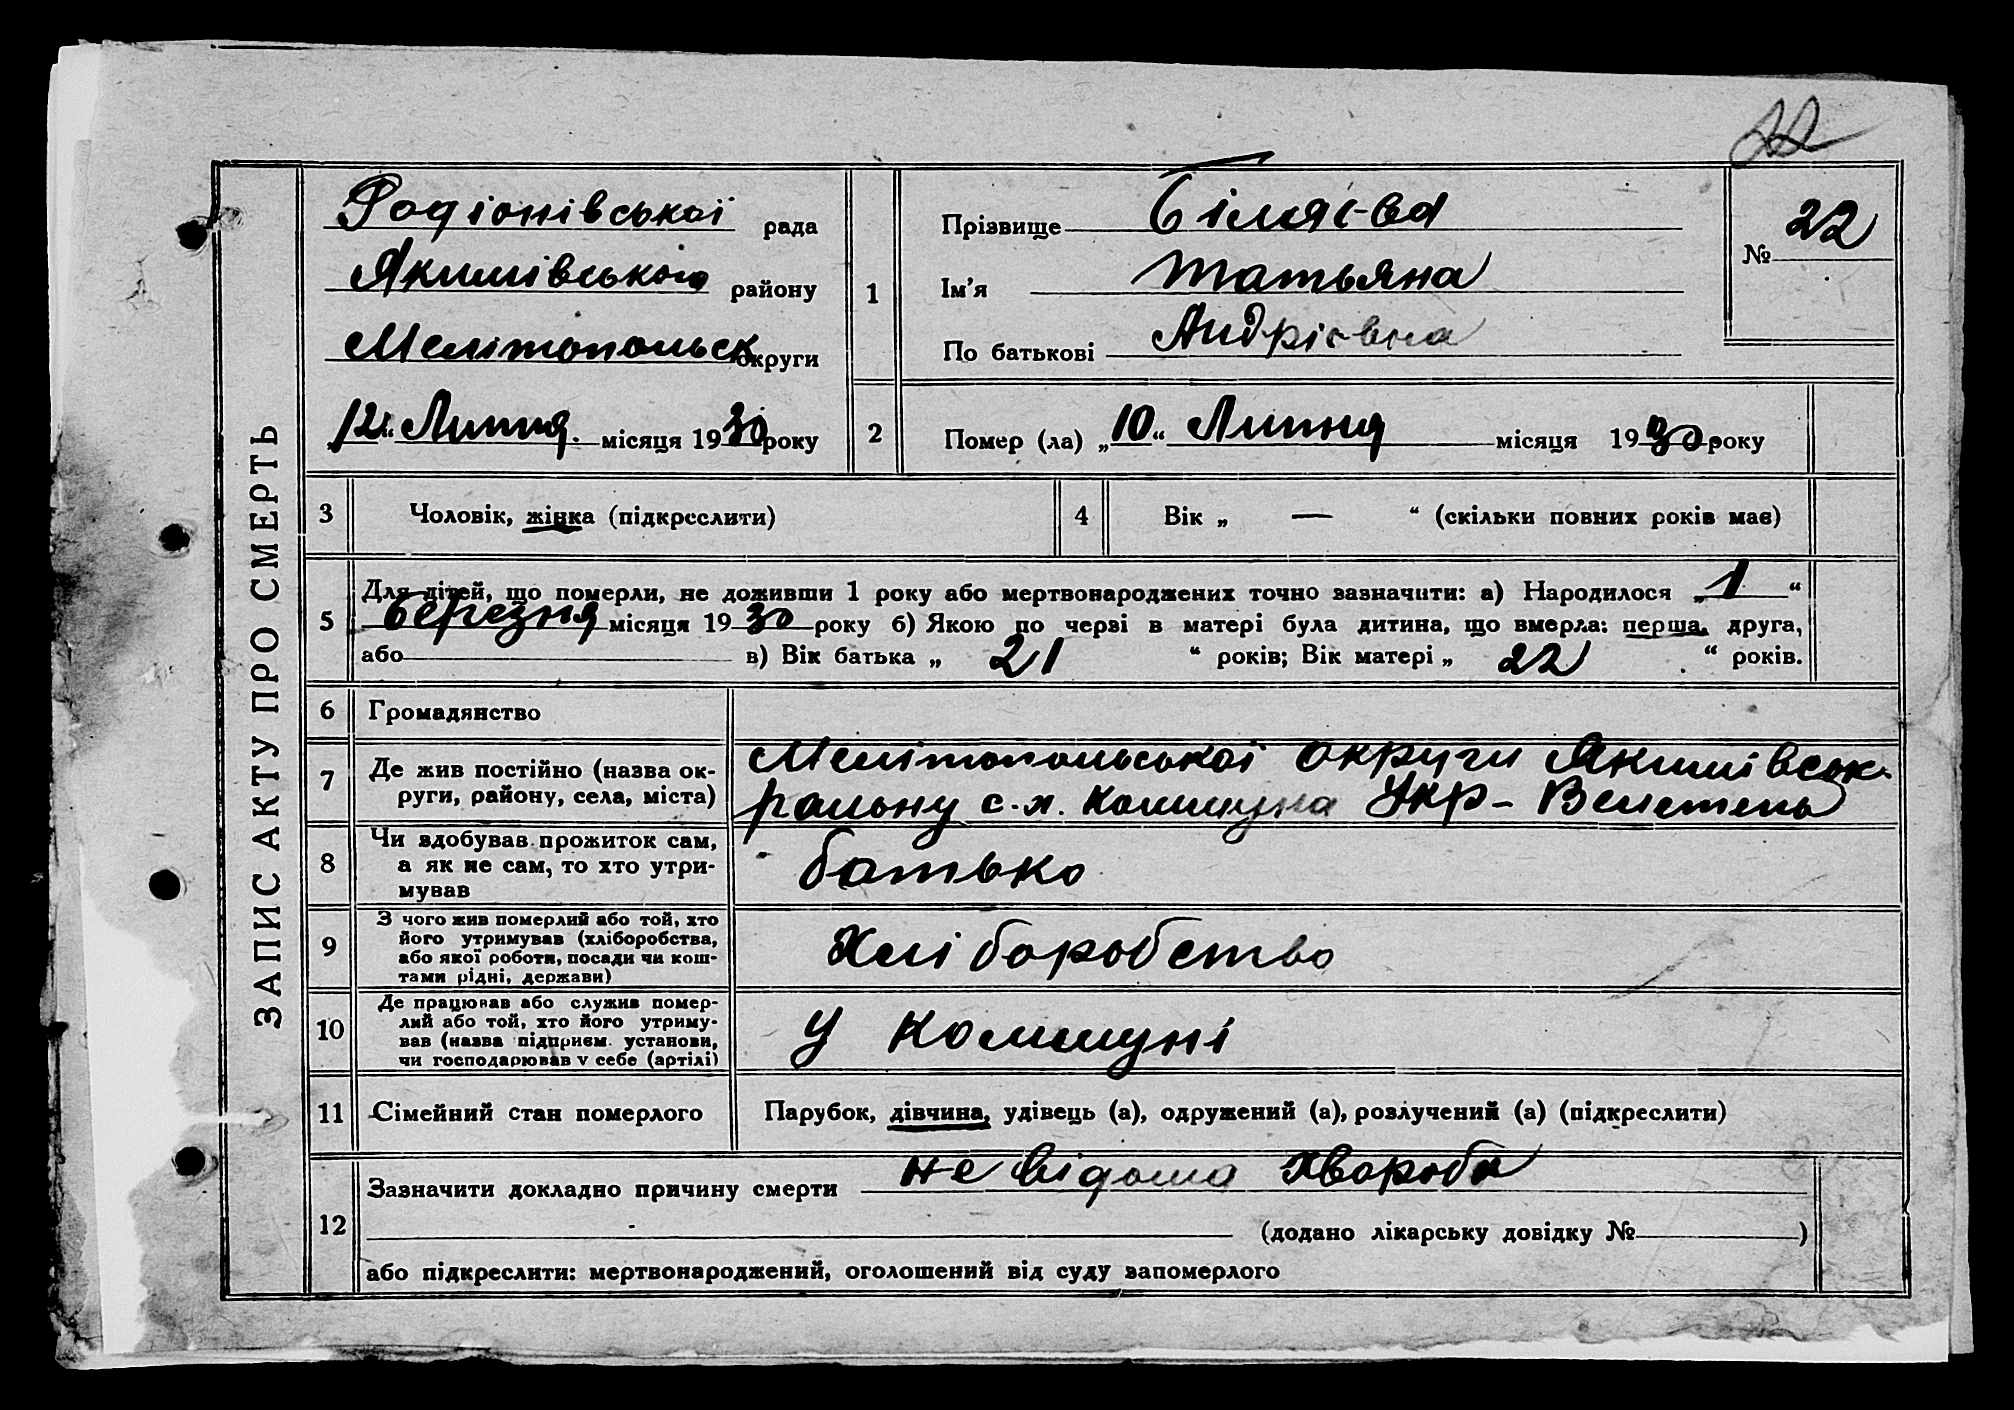 22
ЗАПИС АКТУ ПРО СМЕРТЬ
Родіонівської рада
Якимівського району
Мелітопольск округи
„12“ Липня. місяця 1930 року
1
Прізвище Біляєва
Ім'я Татьяна
По батькові Андрієвна
№ 22
2
Помер (ла) „10“ Липня місяця 1930 року
3
Чоловік, жінка (підкреслити)
4
Вік „ — “ (скільки повних років має)
5
Для дітей, що померли, не доживши 1 року або мертвонароджених точно зазначити: а) Народилося „1“
березня місяця 1930 року б) Якою по черзі в матері була дитина, що вмерла: перша, друга,
або в) Вік батька „ 21 “ років; Вік матері „ 22 “ років.
6
Громадянство
7
Де жив постійно (назва ок-
руги, району, села, міста)
Мелітопольської округи Якимівськ.
району с.х. комуна Укр-
8
Чи здобував прожиток сам,
а як не сам, то хто утри-
мував
батько
9
З чого жив померлий або той, хто
його утримував (хліборобства,
або якої роботи, посади чи кош-
тами рідні, держави)
Хліборобство
10
Де працював або служив помер-
лий або той, хто його утриму-
вав (назва підприєм. установи,
чи господарював у себе (артілі)
У комуні
11
Сімейний стан померлого
Парубок, дівчина, удівець (а), одружений (а), розлучений (а) (підкреслити)
12
Зазначити докладно причину смерти не відома хвороба
(додано лікарську довідку № )
або підкреслити: мертвонароджений, оголошений від суду запомерлого